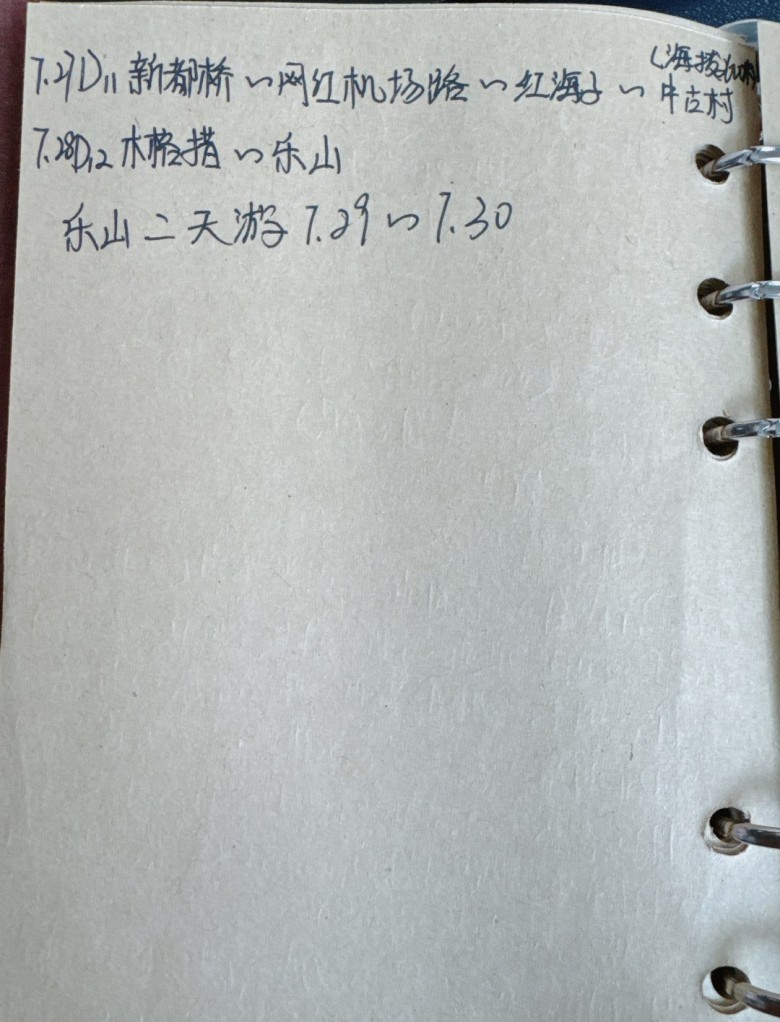 7.27D11 新都桥~网红机场路~红海子~中古村
(海拔
7.28D12 木格措~乐山
乐山二天游 7.29~7.30